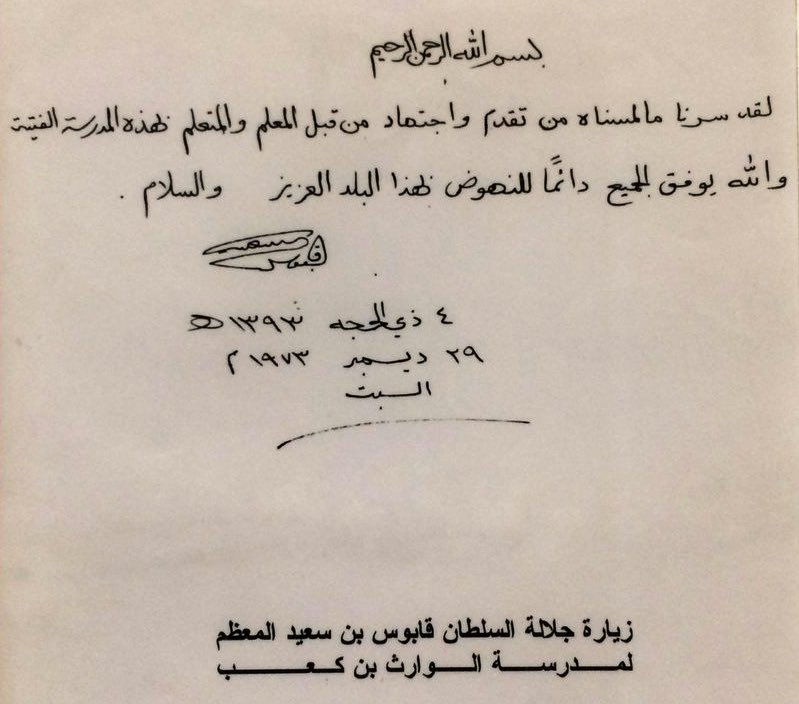 بسم الله الرحمن الرحيم
لقد سرنا مالمسناه من تقدم واجتهاد من قبل المعلم والمتعلم لهذه المدرسة الفتية
والله يوفق الجميع دائمًا للنهوض لهذا البلد العزيز والسلام .
قابوس
٤ ذي الحجه ١٣٩٣ هـ
٢٩ ديسمبر ١٩٧٣ م
السبت
زيارة جلالة السلطان قابوس بن سعيد المعظم
لمدرسة الوارث بن كعب